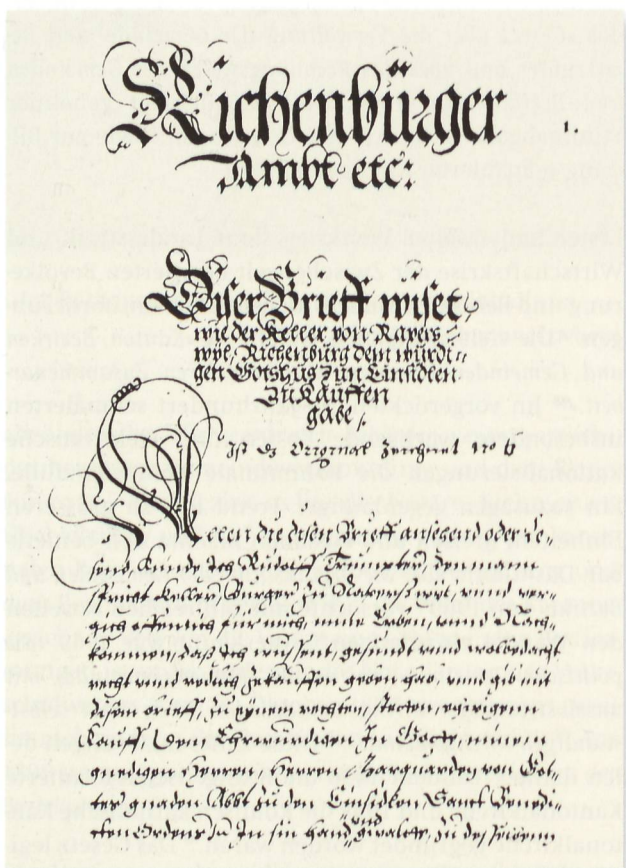 Richenbürger
Ambt etc:
Diser Brieff wiset,
wie der Keller von Rapers
wyl, Richenburg dem würdi:
gen Gotshus zun Einsidlen
Zu Kauffen
gabe /.
Ist dz Original Zeichnet No
Allen die disen Brieff ansehend oder le,,
send, Künde Ich Rüdolff Trümpter, den mann
spricht Keller, Burger zu Raperß wyl, vnnd ver,,
gich offentlich für mich, mine Erben, vnnd Nach,,
kommen, daß Ich wüssent, gesundt vnnd wolbedacht
recht vnnd redlich zekauffen geben hab, vnnd gib mit
disem brieff, zu einem rechten, stetten ewigenn
Kauff, Dem Ehrwürdigen In Gott, minem
gnedigen Herren, Herren Marquarden von Got,,
tes gnaden Abbt zu den Einsidlen Sanct Bendi,,
cten Ordens zu In sin hand vnd gwalt, zu des sinem